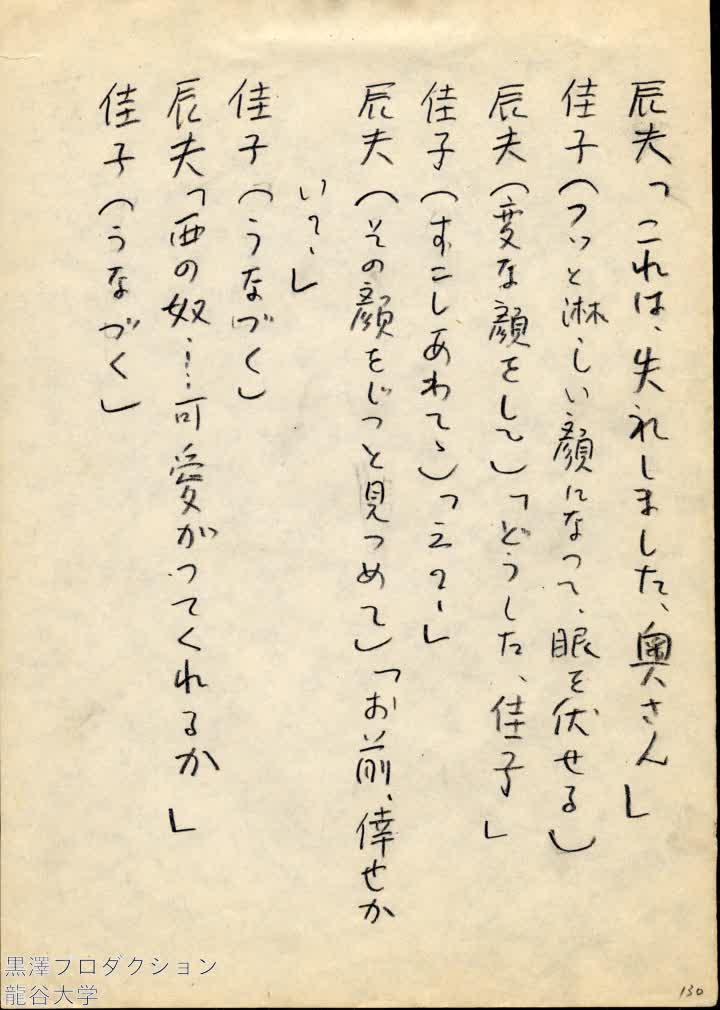 辰夫「これは、失礼しました、奥さん」
佳子(フッと淋しい顔になって、眼を伏せる)
辰夫(変な顔をして)「どうした、佳子」
佳子(すこしあわてゝ)「え?」
辰夫(その顔をじっと見つめて)「お前、倖せか
い?」
佳子(うなづく)
辰夫「西の奴…可愛がってくれるか」
佳子(うなづく)
130
黒澤プロダクション
龍谷大学